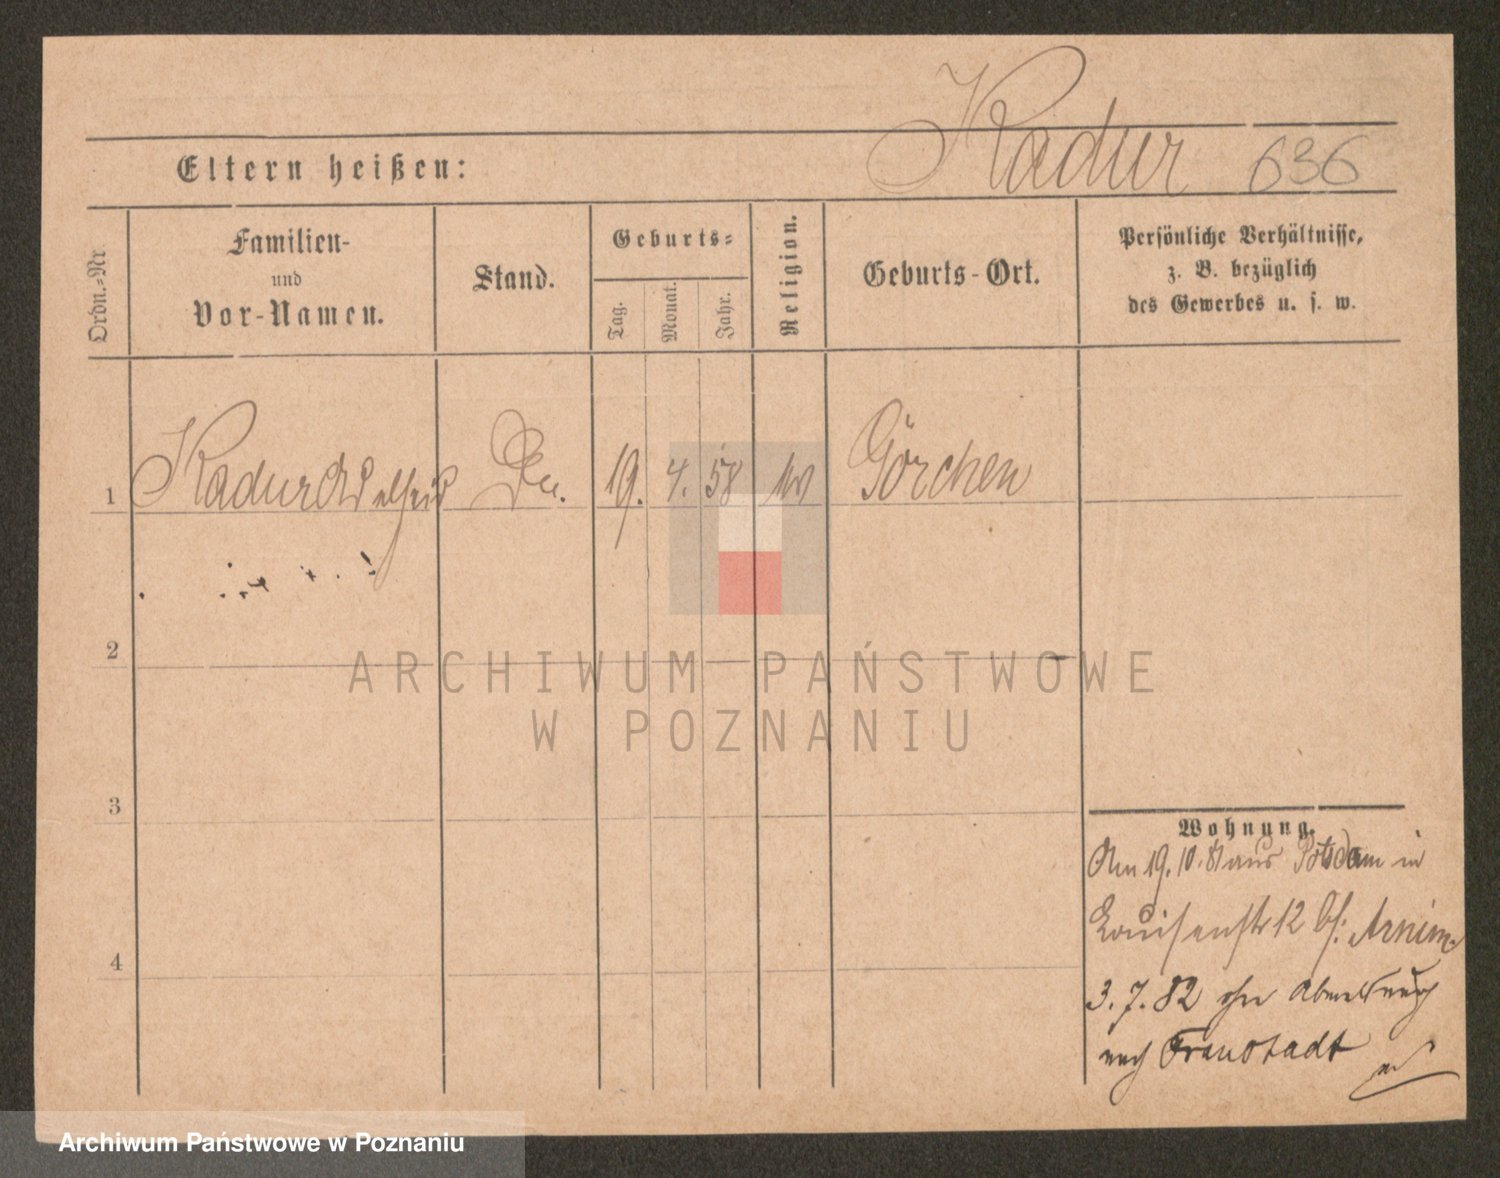 Kadur 636
Eltern heißen:
Ordn.-Nr
Familien-
und
Vor-Namen.
Stand.
Geburts-
Tag.
Monat.
Jahr.
Religion.
Geburts-Ort.
Persönliche Verhältnisse,
z. B. bezüglich
des Gewerbes u. s. w.
1 Kadur 19. 4. 58 Görchen
2
3
4
Wohnung.
Am 19. 10. 81 aus Potsdam in
Louisenstr 12 bei Arnim
3. 7. 82 ohne Abmeldung
nach Fraustadt
ARCHIWUM PAŃSTWOWE
W POZNANIU
Archiwum Państwowe w Poznaniu